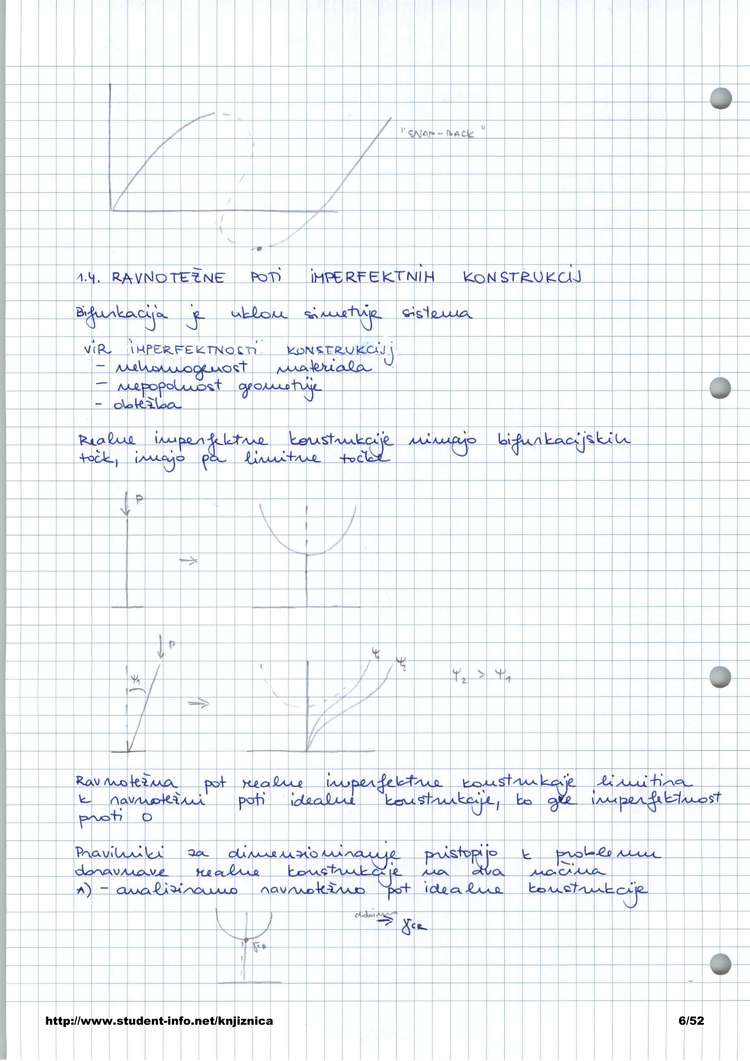 "SNAP-BACK"
1.4. RAVNOTEŽNE POTI IMPERFEKTNIH KONSTRUKCIJ
Bifurkacija je uklon simetrije sistema
VIR IMPERFEKTNOSTI KONSTRUKCIJ
- nehomogenost materiala
- nepopolnost geometrije
- obtežba
Realne imperfektne konstrukcije nimajo bifurkacijskih
točk, imajo pa limitne točke
P
P
Ψ1
Ψ1 Ψ2
Ψ2 > Ψ1
Ravnotežna pot realne imperfektne konstrukcije limitira
k ravnotežni poti idealne konstrukcije, ko gre imperfektnost
proti 0
Pravilniki za dimenzioniranje pristopijo k problemu
obravnave realne konstrukcije na dva načina
1) - analiziramo ravnotežno pot idealne konstrukcije
⇒ γCR
γCR
http://www.student-info.net/knjiznica
6/52